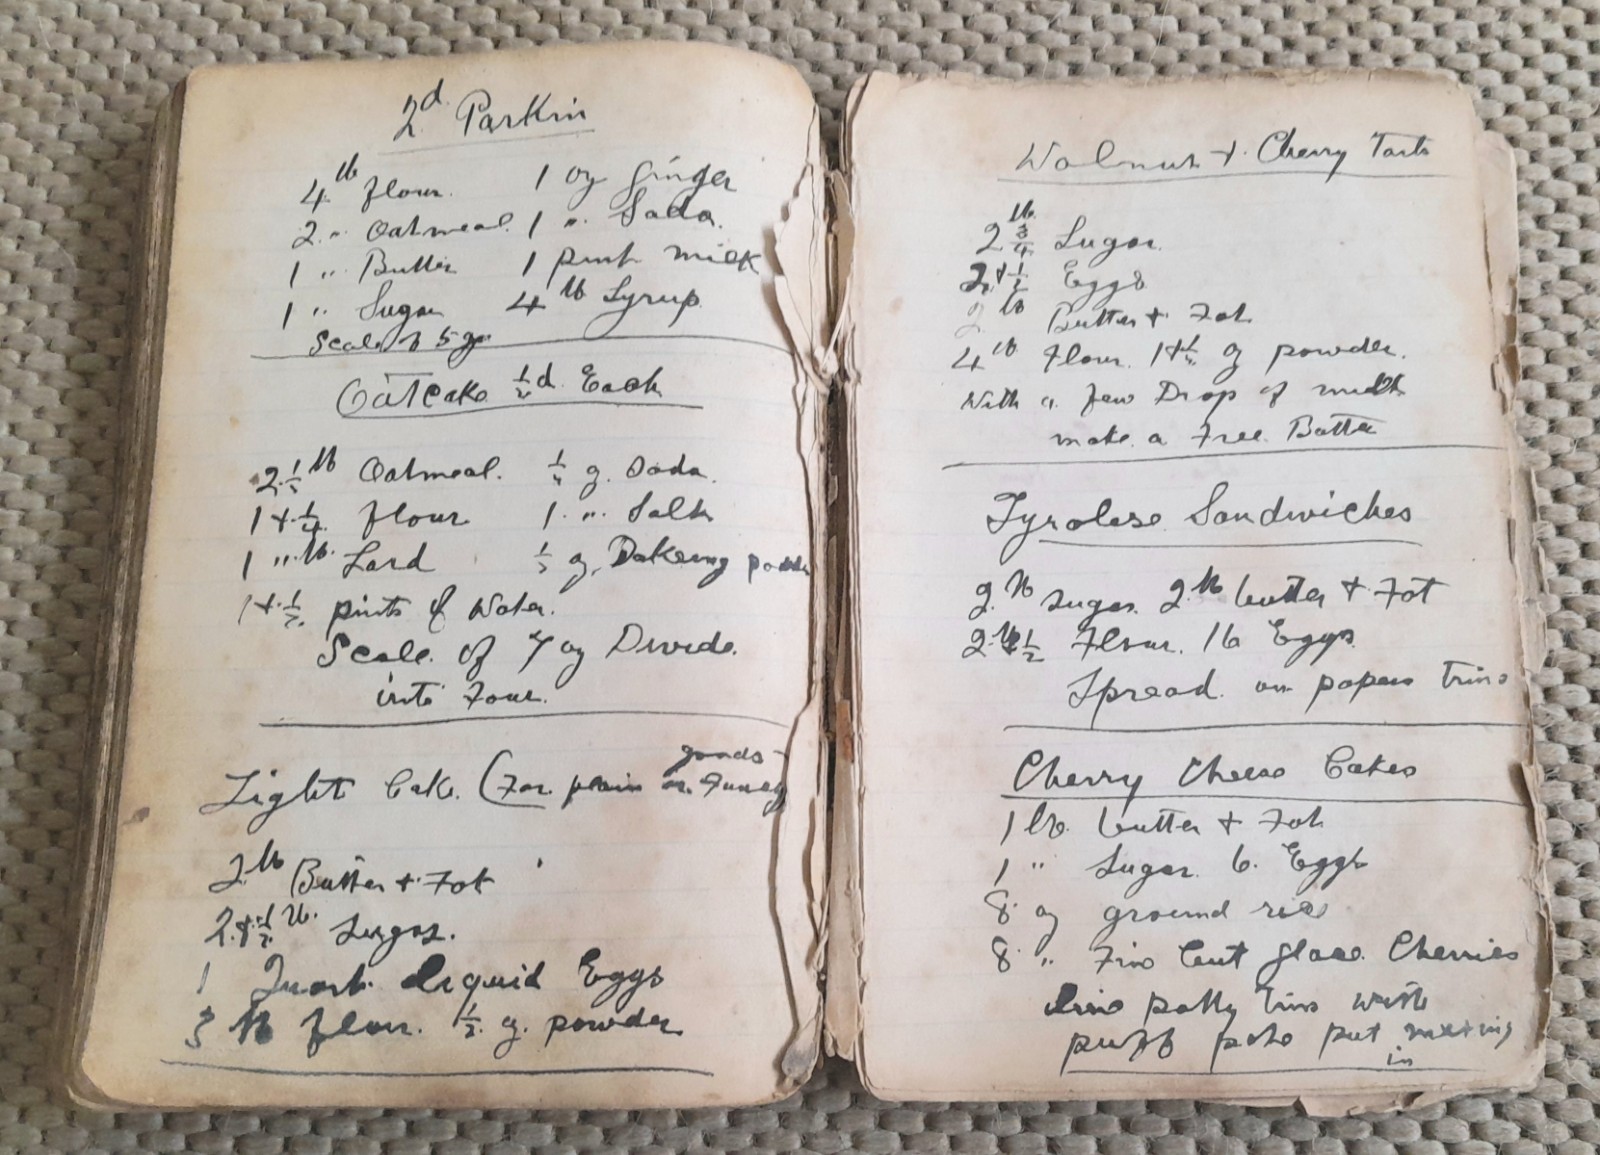 2d. Parkin
4 lb flour. 1 oz Ginger
2 " Oatmeal. 1 " Soda.
1 " Butter 1 pint milk
1 " Sugar 4 lb Syrup.
Scale of 5 oz
Oatcake ½d. Each
2½ lb Oatmeal. ¼ oz. Soda.
1+¼ flour 1 " Salt
1 " lb Lard ½ oz. Bakeing powder
1+½ pints of Water.
Scale of 7 oz Divide.
into Four.
Light Cake. (For plain or Fancy goods
2 lb Butter + Fat
2+½ lb. Sugar.
1 Quart. Liquid Eggs
3 lb flour. ½ oz. powder
Walnut + Cherry Tarts
2¾ lb. Sugar.
2+½ Eggs
2 lb Butter + Fat
4 lb Flour. 1+¼ oz powder.
With a few Drops of milk
make a Free Batter
Tyrolese Sandwiches
2 lb sugar. 2 lb butter + Fat
2 lb ½ Flour. 16 Eggs.
Spread on papers
Cherry Cheese Cakes
1 lb. butter + Fat
1 " Sugar. 6. Eggs
8 oz ground rice
8 " Fine Cut glace Cherries
line patty tins with
puff paste put mixing
in